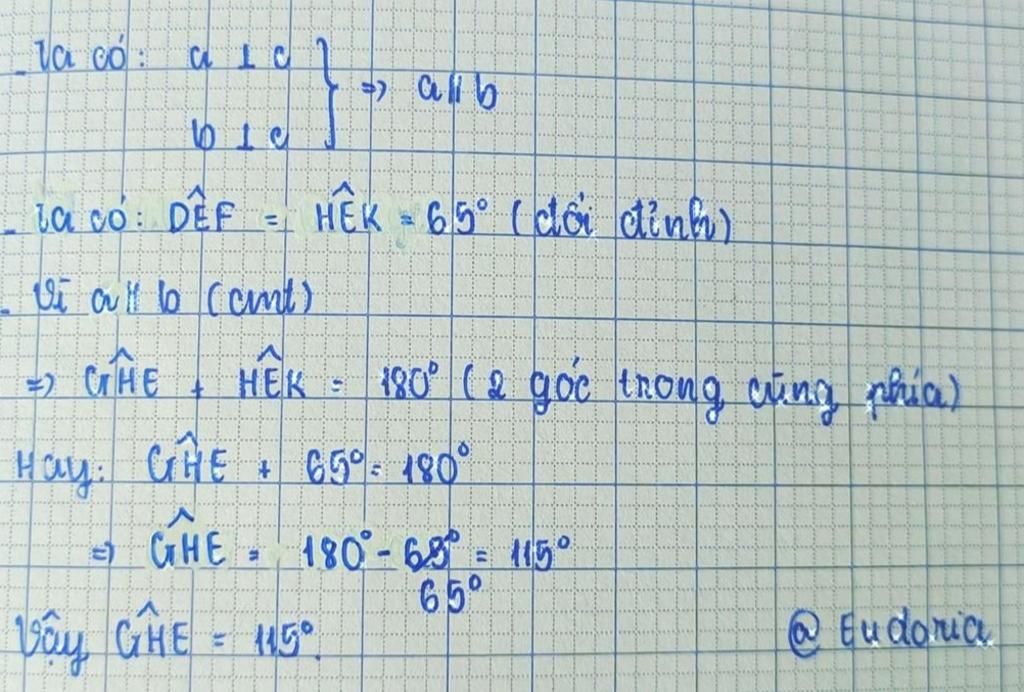 - Ta có: a ⊥ c } => a // b
b ⊥ c
- Ta có: DÊF = HÊK = 65° (đối đỉnh)
- Vì a // b (cmt)
=> GĤE + HÊK = 180° (2 góc trong cùng phía)
Hay: GĤE + 65° = 180°
=> GĤE = 180° - 65° = 115°
65°
Vậy GĤE = 115°.
@ Eudoria